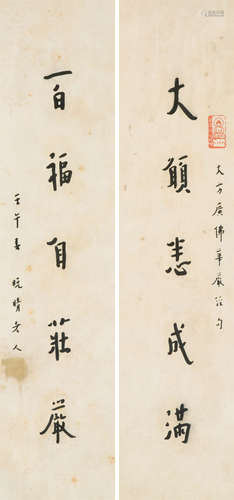 大方廣佛華嚴經句
大願悉成滿
百福自莊嚴
壬午春晚晴老人